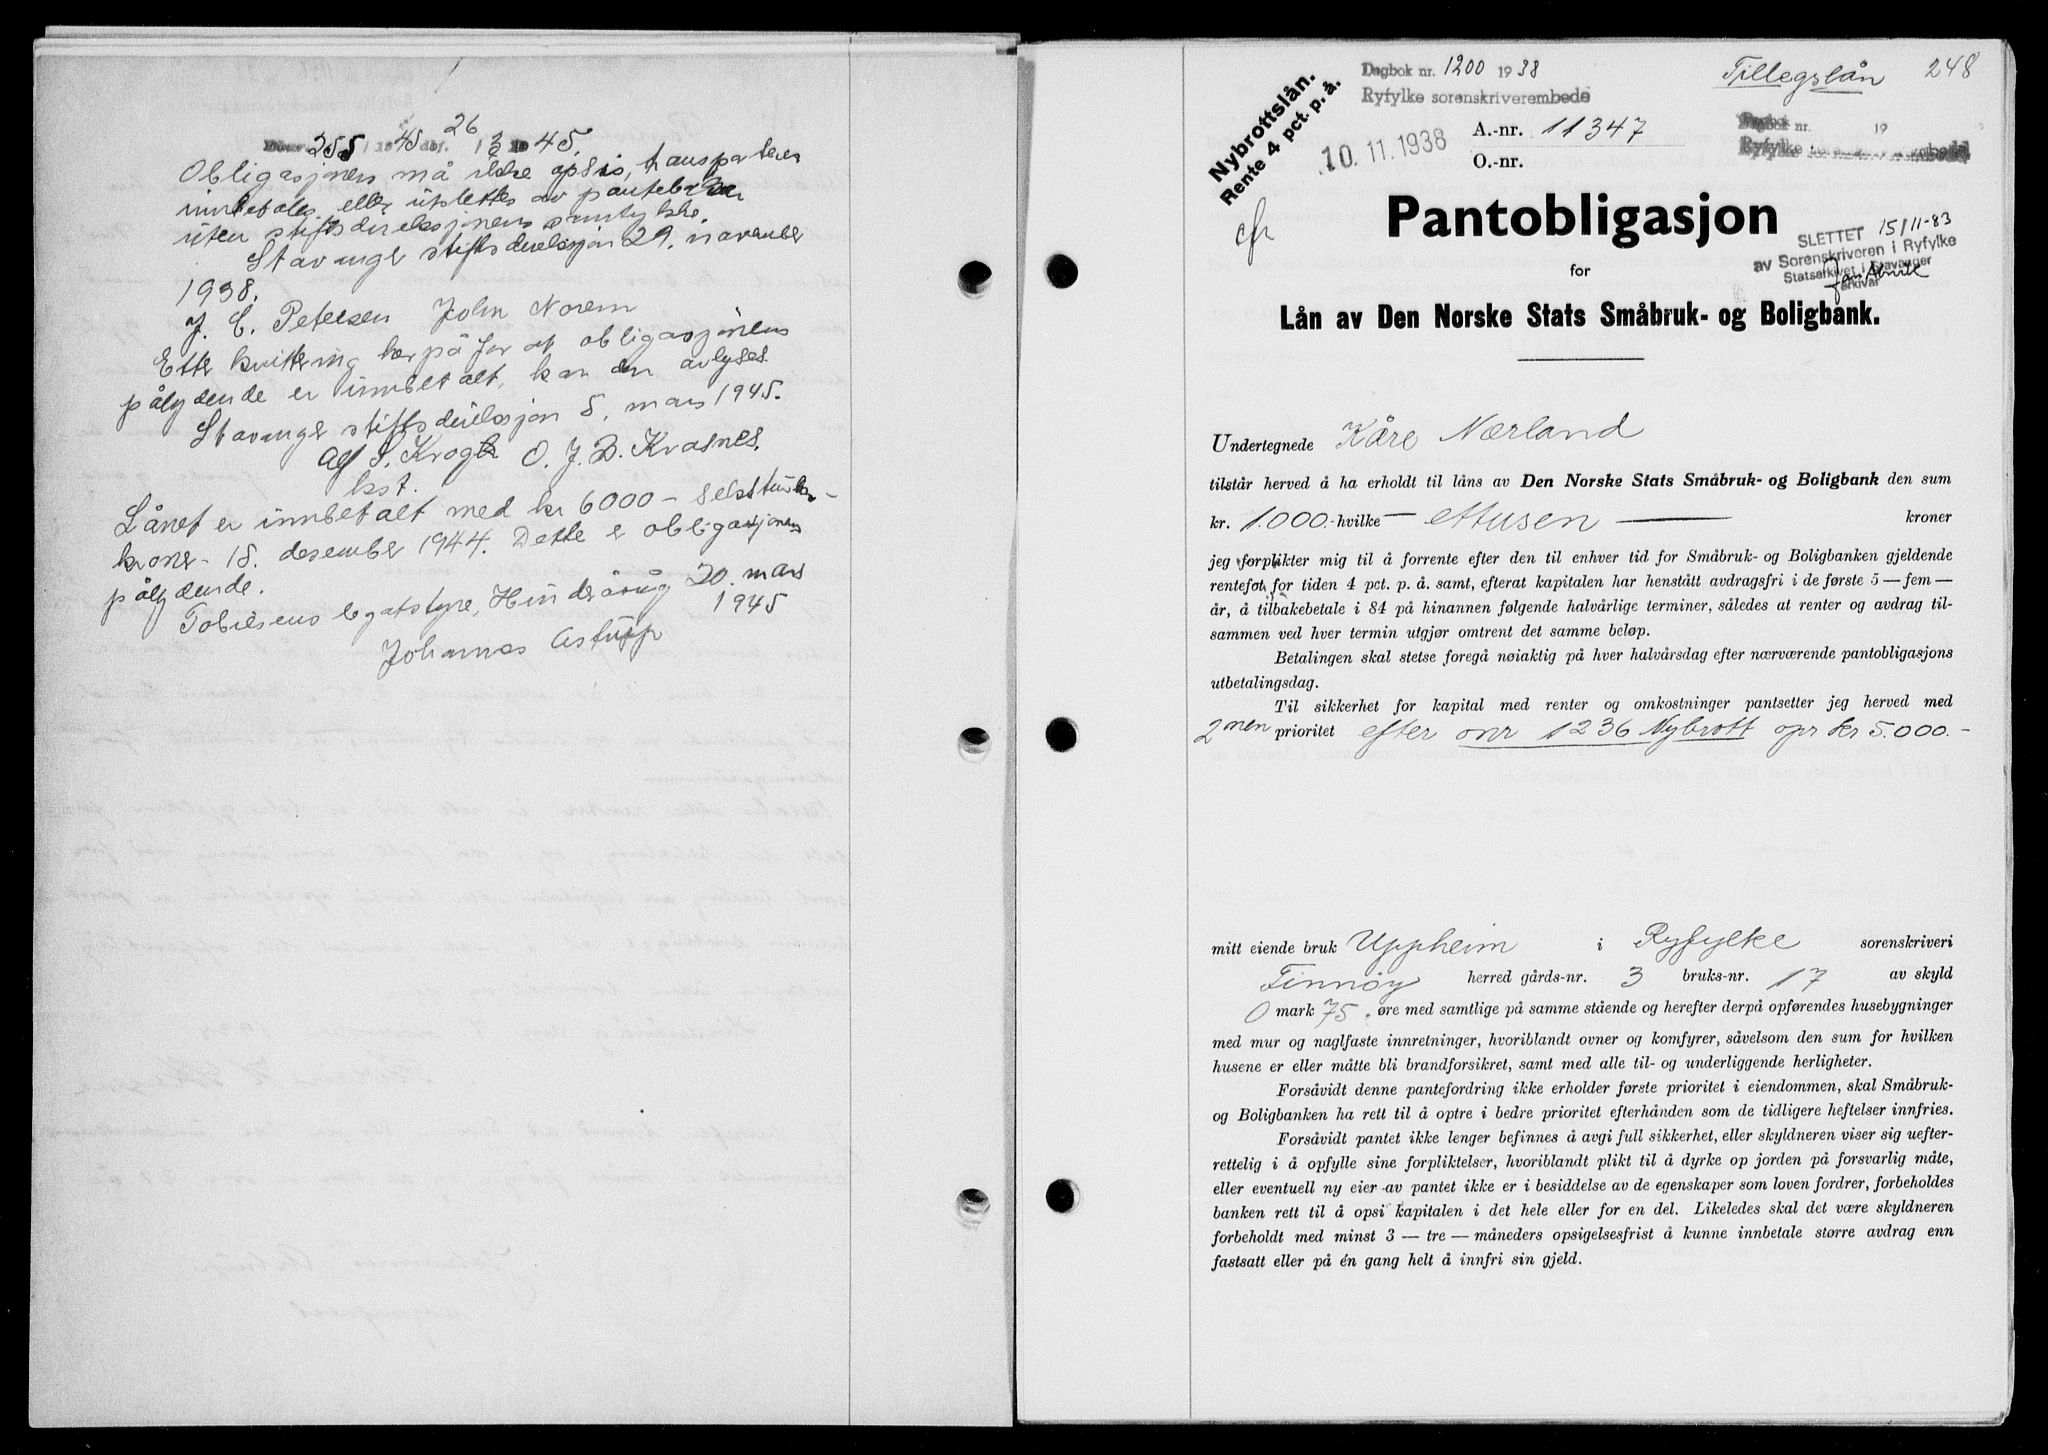 255 1945 dbf. 26/3 1945.
Obligasjonen må ikke opsis, transporteres
innbetales eller utslettes av pantebøkene
uten stiftsdireksjonens samtykke.
Stavanger stiftsdireksjon 29. november
1938.
J. C. Petersen John Norem
Etter kvittering herpå for at obligasjonens
pålydende er innbetalt, kan den avlyses.
Stavanger stiftsdireksjon 5. mars 1945.
Alf S. Krogh O. J. B. Kvasnes.
kst.
Lånet er innbetalt med kr 6000 - sekstusen
kroner - 18. desember 1944. Dette er obligasjonens
pålydende.
Tobiesens legatstyre, Hinderåvåg 20. mars
1945
Johannes Astup
Dagbok nr. 1200 1938
Ryfylke sorenskriverembede
10.11.1938
Nybrottslån.
Rente 4 pct. p. å.
cfr
A.-nr. 11347
O.-nr.
Tillegslån 248
Dagbok nr. 19
Ryfylke sorenskriverembede
Pantobligasjon
SLETTET 15/11-83
av Sorenskriveren i Ryfylke
Statsarkivet i Stavanger
arkivar
for
Lån av Den Norske Stats Småbruk- og Boligbank.
Undertegnede Kåre Nærland
tilstår herved å ha erholdt til låns av Den Norske Stats Småbruk- og Boligbank den sum
kr. 1.000.- hvilke - ettusen - kroner
jeg forplikter mig til å forrente efter den til enhver tid for Småbruk- og Boligbanken gjeldende
rentefot, for tiden 4 pct. p. å. samt, efterat kapitalen har henstått avdragsfri i de første 5 — fem —
år, å tilbakebetale i 84 på hinannen følgende halvårlige terminer, således at renter og avdrag til-
sammen ved hver termin utgjør omtrent det samme beløp.
Betalingen skal stetse foregå nøiaktig på hver halvårsdag efter nærværende pantobligasjons
utbetalingsdag.
Til sikkerhet for kapital med renter og omkostninger pantsetter jeg herved med
2nen prioritet efter onr 1236 Nybrott opr kr 5.000.-
mitt eiende bruk Uppheim i Ryfylke sorenskriveri
Finnøy herred gårds-nr. 3 bruks-nr. 17 av skyld
0 mark 75 øre med samtlige på samme stående og herefter derpå opførendes husebygninger
med mur og naglfaste innretninger, hvoriblandt ovner og komfyrer, såvelsom den sum for hvilken
husene er eller måtte bli brandforsikret, samt med alle til- og underliggende herligheter.
Forsåvidt denne pantefordring ikke erholder første prioritet i eiendommen, skal Småbruk-
og Boligbanken ha rett til å optre i bedre prioritet efterhånden som de tidligere heftelser innfries.
Forsåvidt pantet ikke lenger befinnes å avgi full sikkerhet, eller skyldneren viser sig uefter-
rettelig i å opfylle sine forpliktelser, hvoriblandt plikt til å dyrke op jorden på forsvarlig måte,
eller eventuell ny eier av pantet ikke er i besiddelse av de egenskaper som loven fordrer, forbeholdes
banken rett til å opsi kapitalen i det hele eller for en del. Likeledes skal det være skyldneren
forbeholdt med minst 3 — tre — måneders opsigelsesfrist å kunne innbetale større avdrag enn
fastsatt eller på én gang helt å innfri sin gjeld.